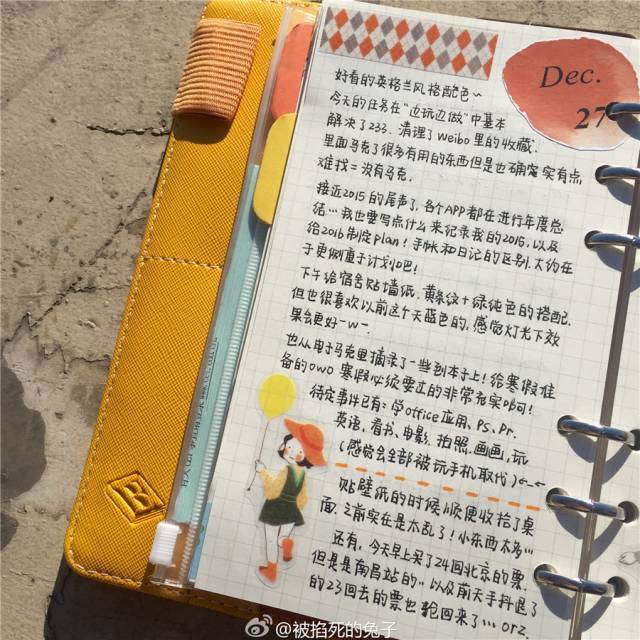 Dec.
27
好看的英格兰风格配色~
今天的任务在“边玩边做”中基本
解决了233. 清理了weibo里的收藏.
里面马克了很多有用的东西但是也确实有点
难找=没有马克.
接近2015的尾声了,各个APP都在进行年度总
结…我也要写点什么来记录我的2015,以及
给2016制定plan!手帐和日记的区别大约在
于更侧重于计划吧!
下午给宿舍贴墙纸.黄条纹+绿纯色的搭配.
但也很喜欢以前这个天蓝色的,感觉灯光下效
果会更好-w-
也从电子马克里摘录了一些到本子上!给寒假准
备的owo 寒假必须要过的非常充实哟!
待定事件已有:学office应用、Ps、Pr、
英语、看书、电影、拍照、画画、玩
(感觉会全部被玩手机取代)←_←
贴壁纸的时候顺便收拾了桌
面 之前实在是太乱了!小东西太多…
还有,今天早上买了24回北京的票.
但是是南昌站的.. 以及前天手抖退了
的23回去的票也轮回来了…orz.
@被掐死的兔子